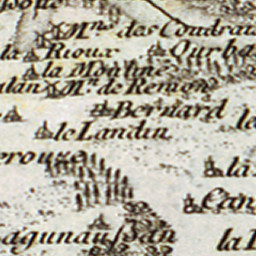 Mns des Coudrai
la Rioux Ourba
la Mouline
alan Mn de Remon
Bernard la
le Landin
erouze
la
Can
agunaussan la